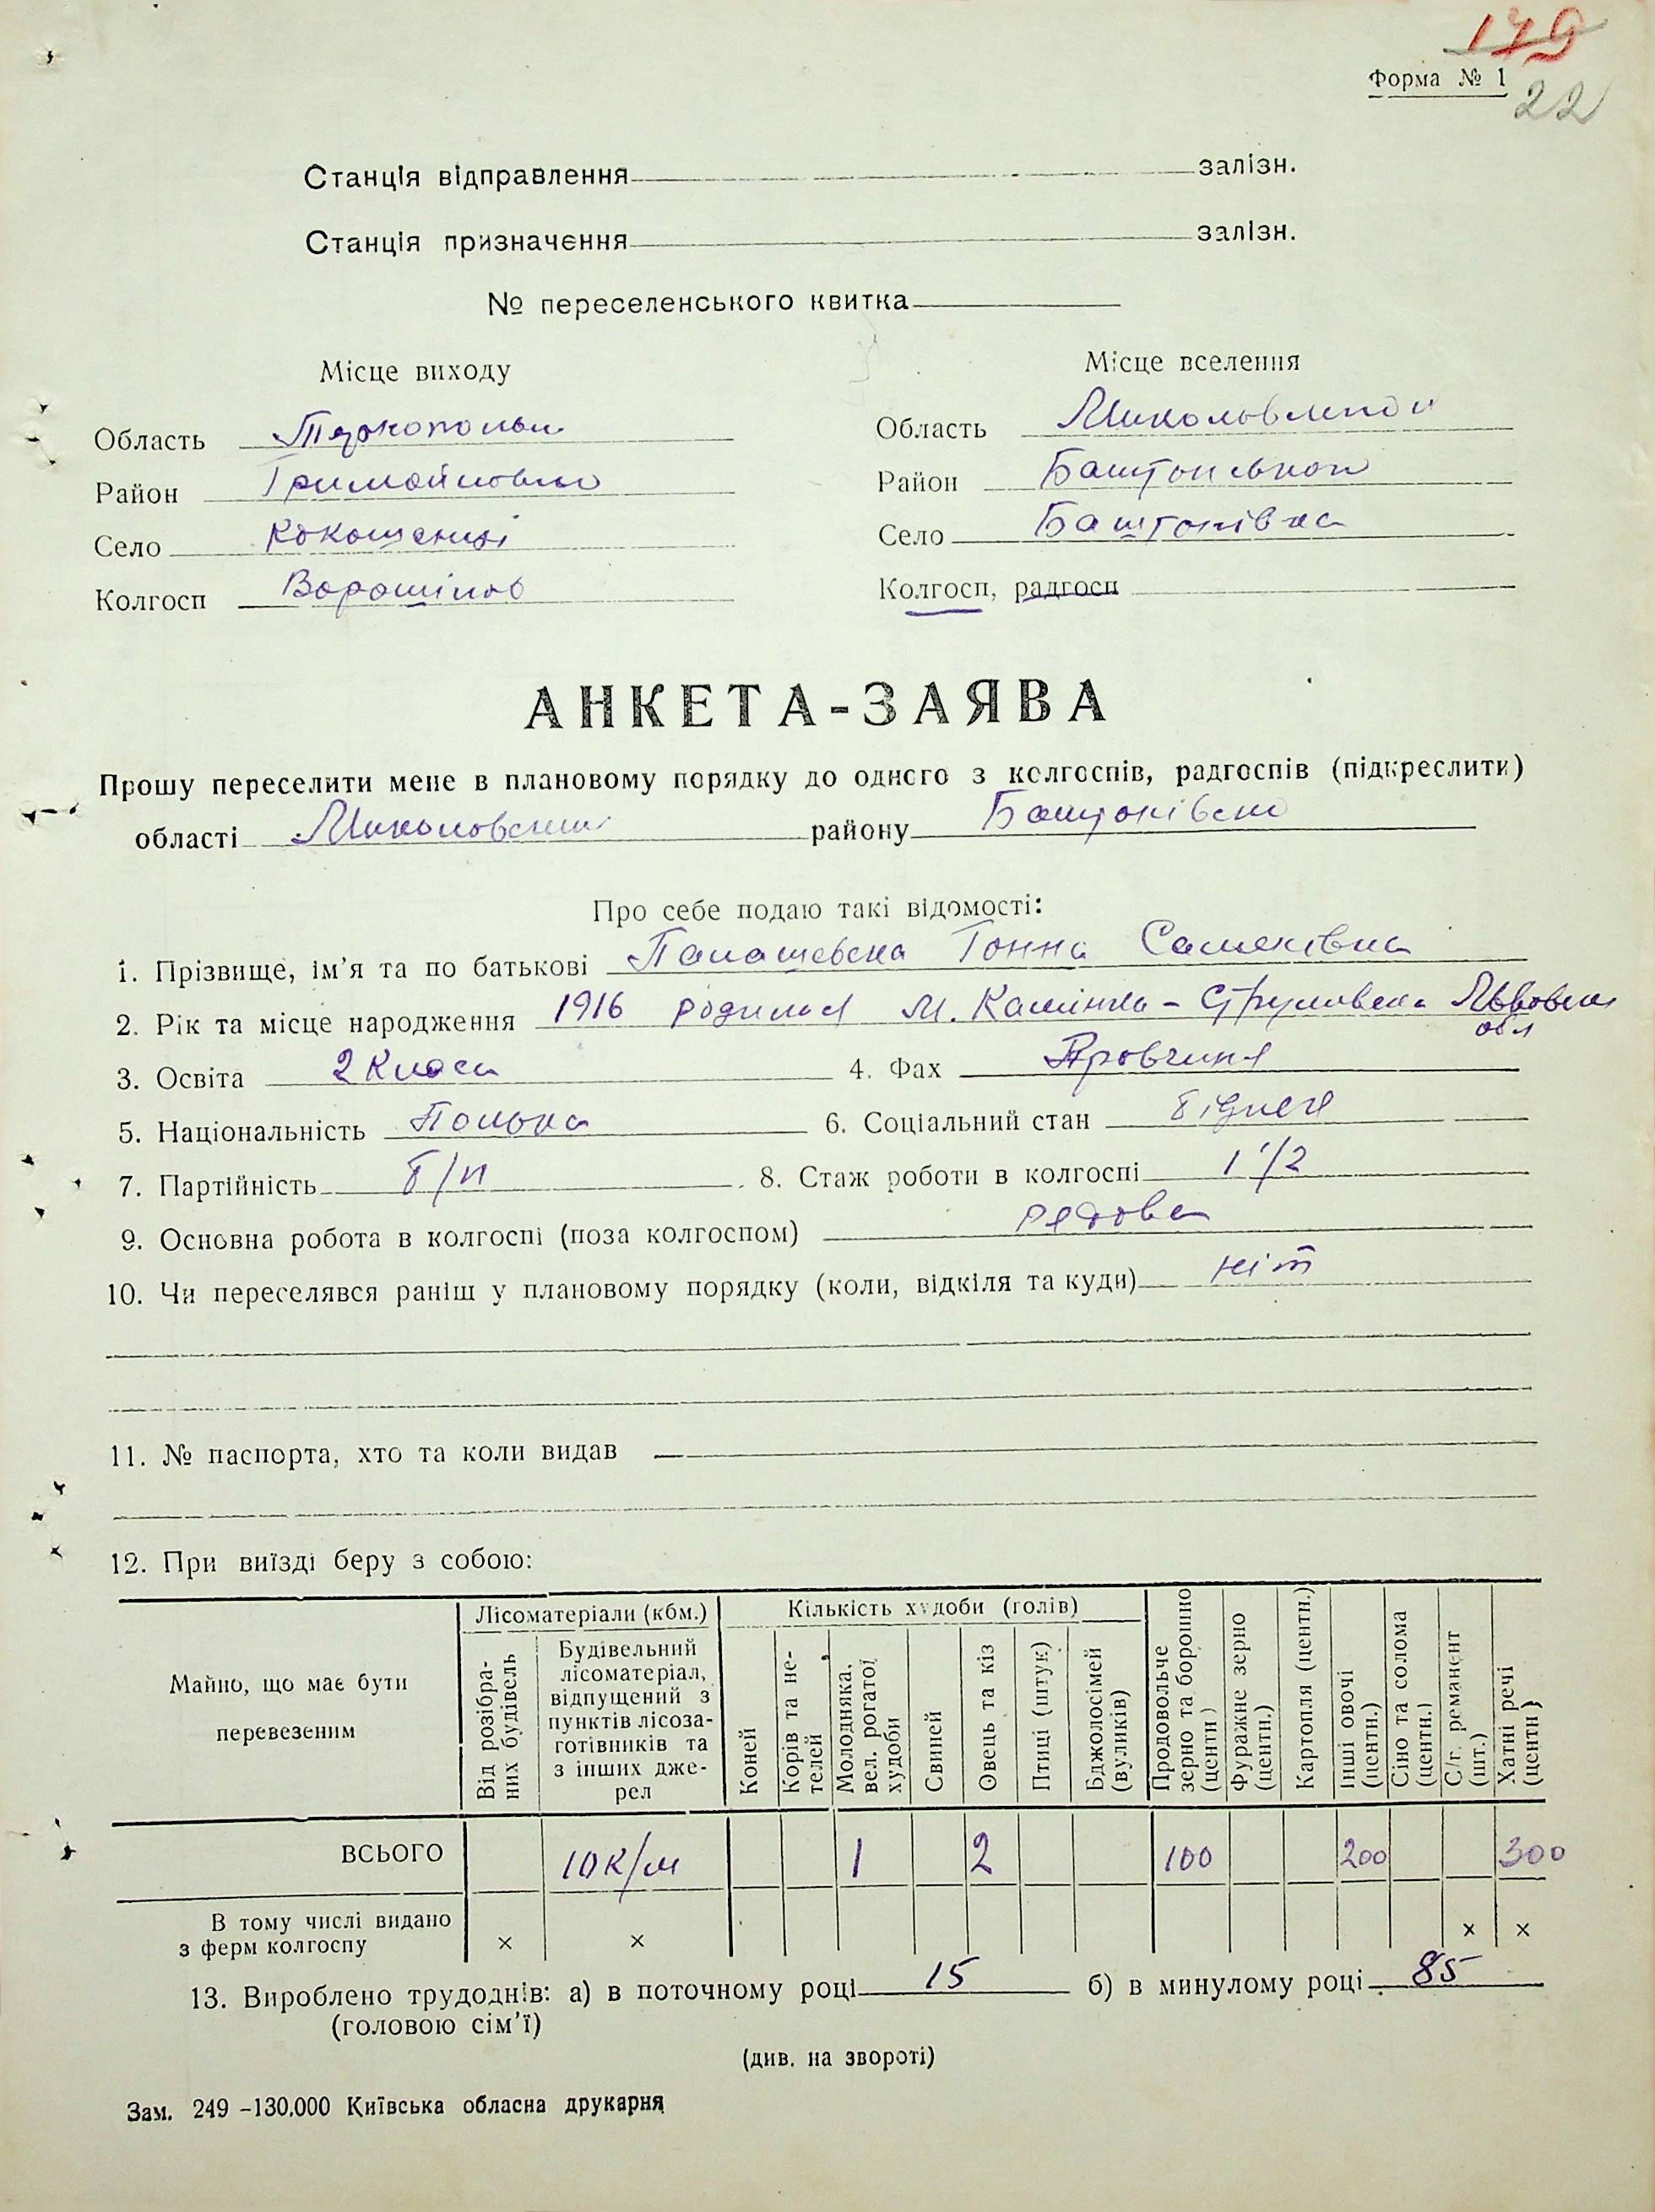 179
Форма № 1
22
Станція відправлення залізн.
Станція призначення залізн.
№ переселенського квитка
Місце виходу
Місце вселення
Область
Область
Район
Район
Село
Село Баштонівка
Колгосп Ворошілов
Колгосп, радгосп
АНКЕТА-ЗАЯВА
Прошу переселити мене в плановому порядку до одного з колгоспів, радгоспів (підкреслити)
області району
Про себе подаю такі відомості:
1. Прізвище, ім'я та по батькові
2. Рік та місце народження 1916 м. Камінка-Струмивська обл
3. Освіта 2 Класи 4. Фах
5. Національність Полька 6. Соціальний стан
7. Партійність б/п 8. Стаж роботи в колгоспі 1 1/2
9. Основна робота в колгоспі (поза колгоспом) рядова
10. Чи переселявся раніш у плановому порядку (коли, відкіля та куди) ніт
11. № паспорта, хто та коли видав
12. При виїзді беру з собою:
Майно, що має бути перевезеним
Лісоматеріали (кбм.)
Від розібраних будівель
Будівельний лісоматеріал, відпущений з пунктів лісозаготівників та з інших джерел
Кількість худоби (голів)
Коней
Корів та нетелей
Молодняка, вел. рогатої худоби
Свиней
Овець та кіз
Птиці (штук)
Бджолосімей (вуликів)
Продовольче зерно та борошно (центн)
Фуражне зерно (центн.)
Картопля (центн.)
Інші овочі (центн.)
Сіно та солома (центн.)
С/г. реманент (шт.)
Хатні речі (центн)
ВСЬОГО 10 к/м 1 2 100 200 300
В тому числі видано з ферм колгоспу × × × ×
13. Вироблено трудоднів: а) в поточному році 15 б) в минулому році 85
(головою сім'ї)
(див. на звороті)
Зам. 249 -130.000 Київська обласна друкарня